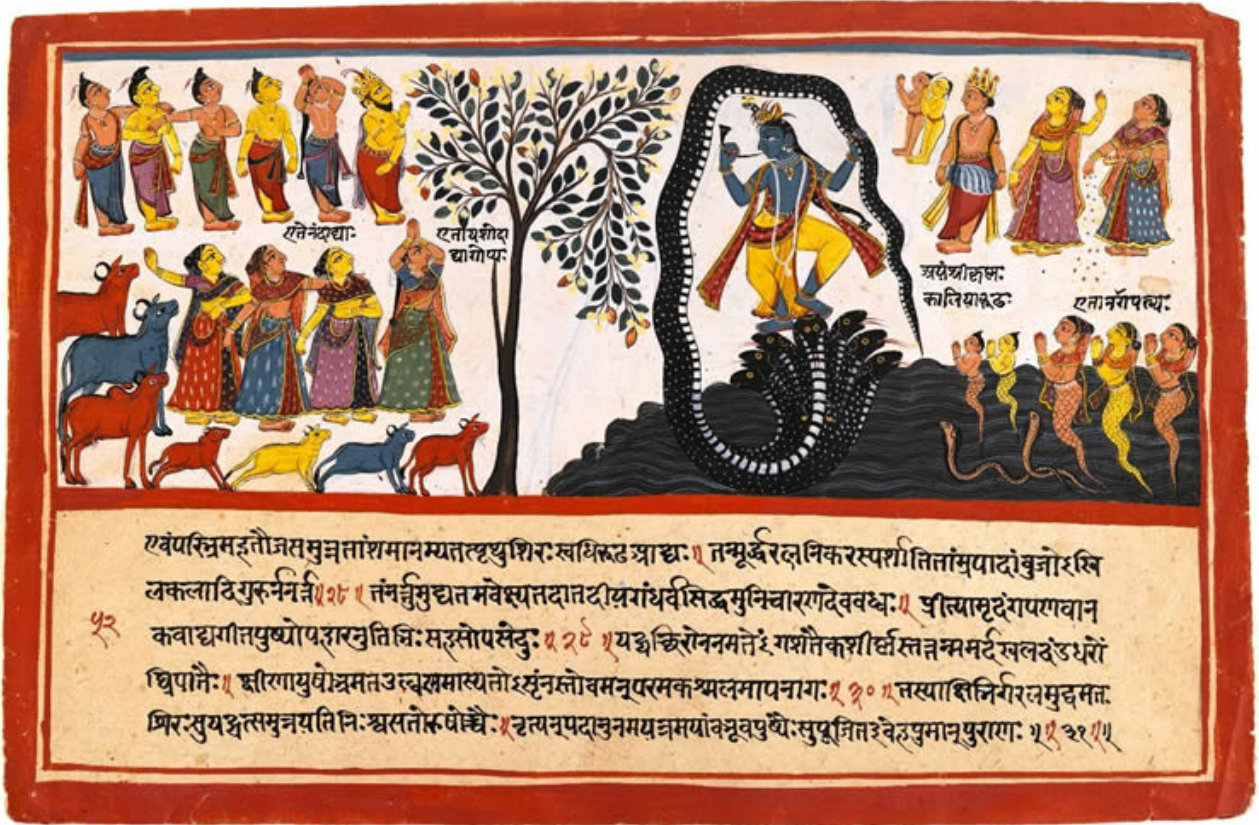 एतेनंदाद्याः
एतायशोदा
द्यागोप्यः
अयंश्रीकृष्णः
कालियारूढः
एतानागपत्न्यः
एवंपरिभ्रमहतौजसमुन्नतांशमानम्यतत्पृथुशिरःस्वधिरूढआद्यः॥ तन्मूर्द्धरत्ननिकरस्पर्शातिताम्रपादांबुजोऽखि
लकलादिगुरुर्ननर्त्त॥२८॥ तंनर्त्तुमुद्यतमवेक्ष्यतदातदीयगंधर्वसिद्धमुनिचारणदेववध्वः॥ प्रीत्यामृदंगपणवान
५२
कवाद्यगीतपुष्पोपहारनुतिभिः सहसोपसेदुः॥२९॥ यद्यच्छिरोननमतेऽंगशतैकशीर्ष्णस्तत्तन्ममर्दखलदंडधरों
घ्रिपातैः॥ क्षीणायुषोभ्रमतउल्बणमास्यतोऽसृङ्नस्तोवमन्परमकश्मलमापनागः॥३०॥ तस्याक्षिभिर्गरलमुद्वमतः
शिरःसुयद्यत्समुन्नमतिनिःश्वसतोरुषोच्चैः॥ नृत्यन्पदानुनमयन्दमयांबभूवपुष्पैःसुपूजितइवेहपुमान्पुराणः॥॥३१॥॥